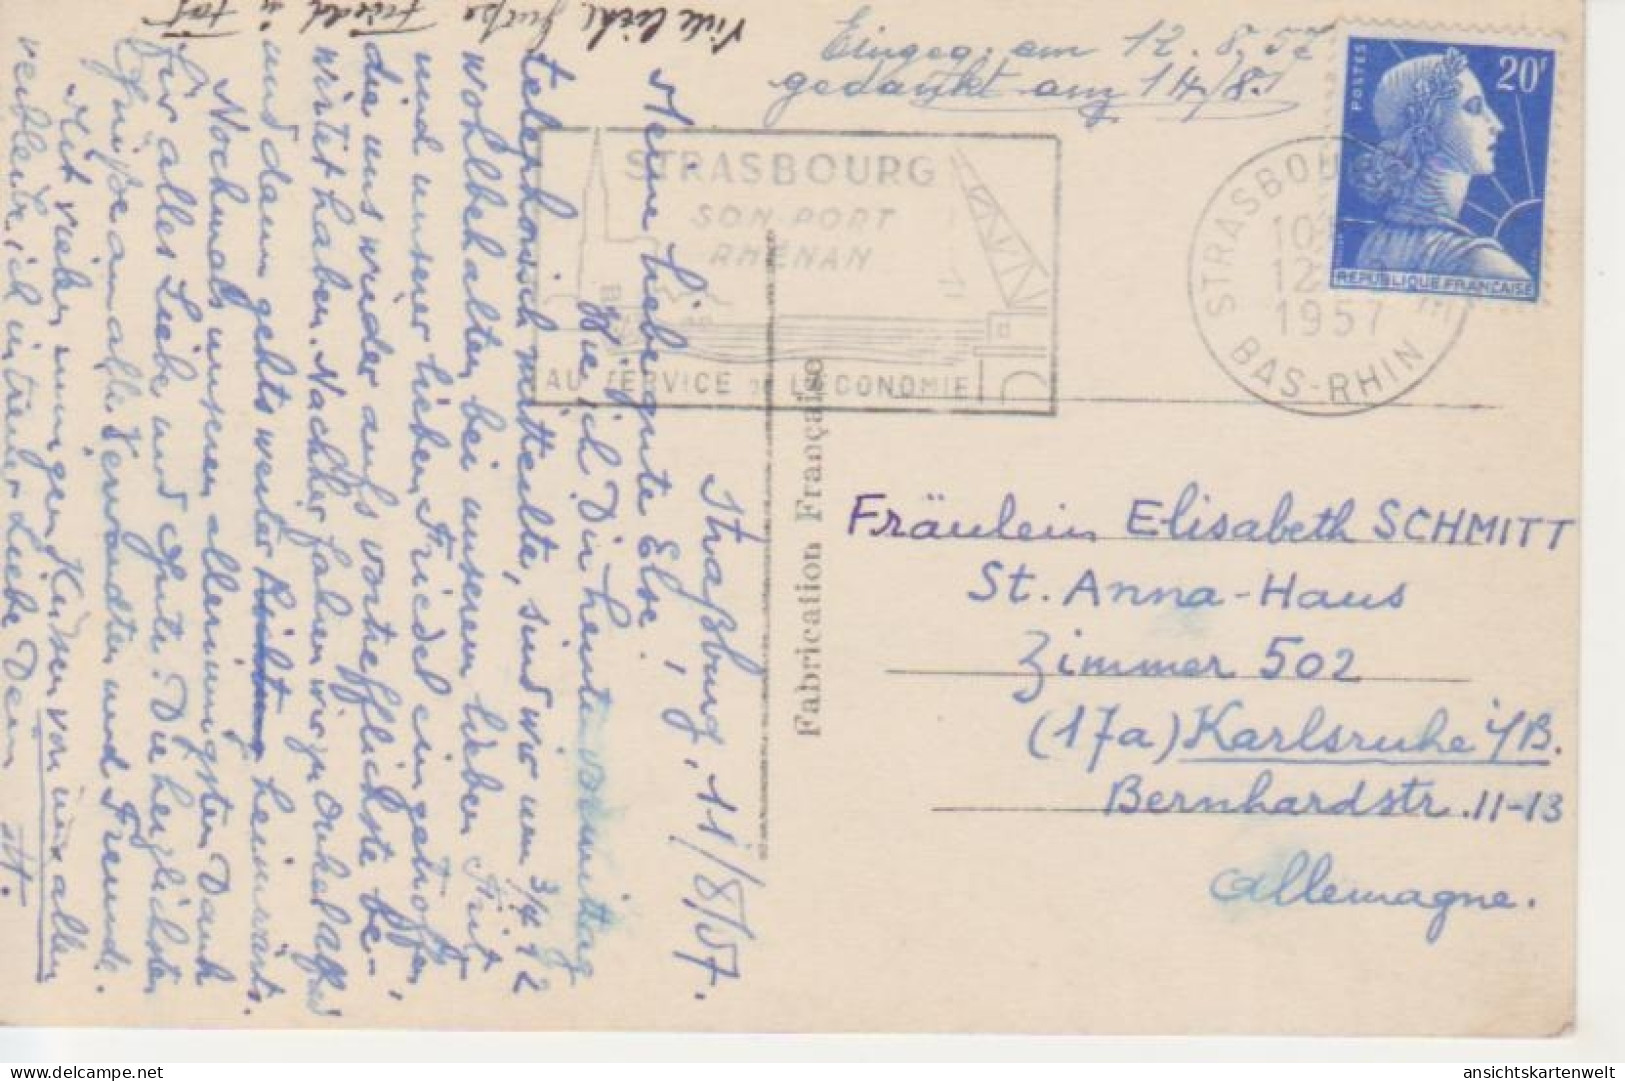 Viele liebe Grüße Friedel u.
Eingeg. am 12.8.57
gedankt am 14/8.
POSTES
20F
REPUBLIQUE FRANÇAISE
STRASBOURG
SON PORT
RHÉNAN
AU SERVICE DE L'ECONOMIE
STRASBOURG
12
1957
BAS-RHIN
Straßburg, 11/8/57.
Meine liebe gute Else!
Wie ich Dir heute vormittag
telephonisch mitteilte, sind wir um 3/4 12
wohlbehalten bei unserem lieben Fritz
und unserer lieben Friedel eingetroffen,
die uns wieder aufs vortrefflichste be-
wirtet haben. Nachher fahren wir zu Onkel Alfred
und dann gehts weiter heimwärts.
Nochmals unseren allerinnigsten Dank
für alles Liebe und Gute. Die herzlichsten
Grüße an alle Verwandten und Freunde.
Mit vielen innigen Küssen von uns allen
verbleibe ich in treuer Liebe Dein
Fabrication Française
Fräulein Elisabeth SCHMITT
St. Anna-Haus
Zimmer 502
(17a) Karlsruhe i/B.
Bernhardstr. 11-13
Allemagne.
ansichtskartenwelt